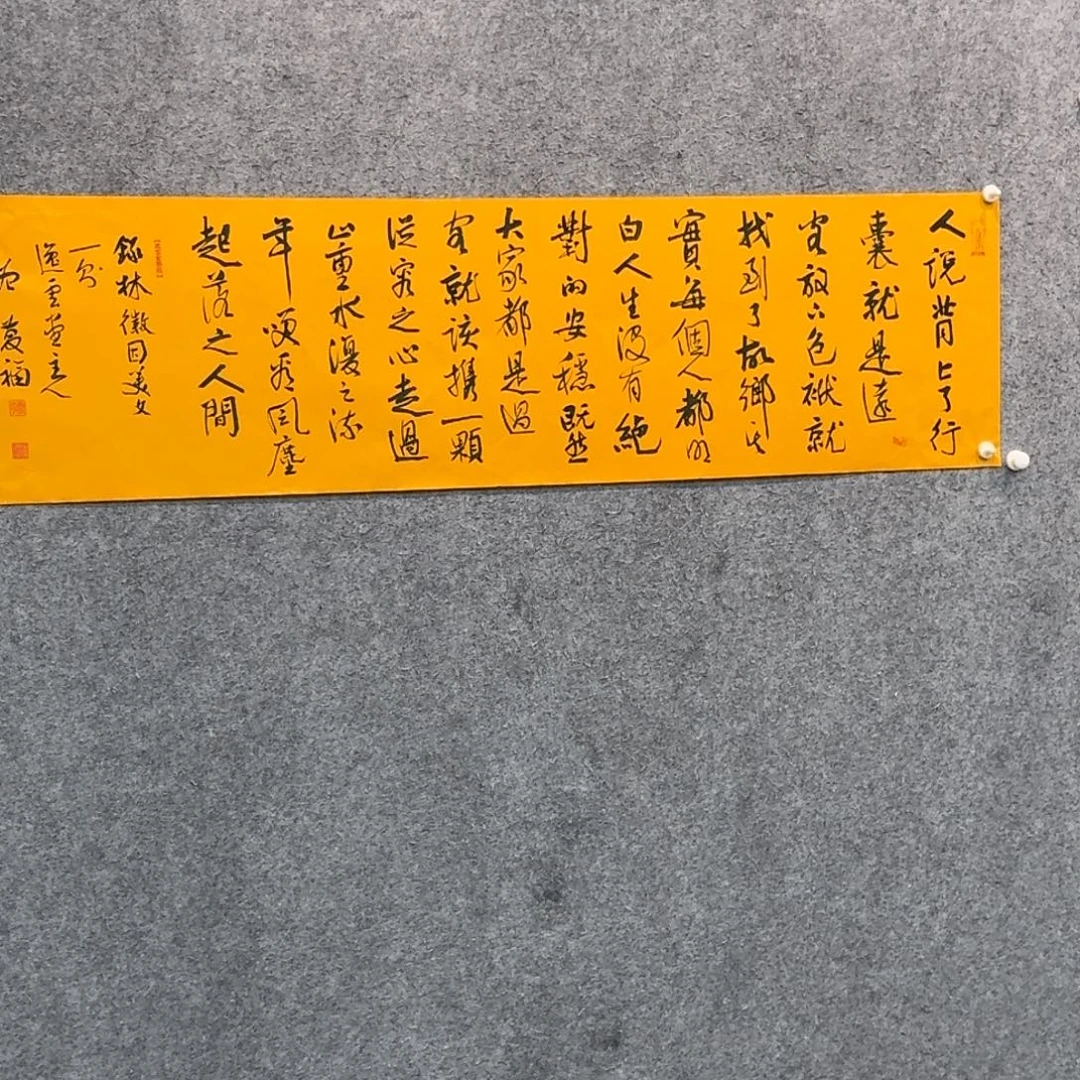 人说背上了行
囊就是远
客放下包袱就
找到了故鄉其
實每個人都明
白人生没有絶
對的安穩既然
大家都是過
客就该攜一顆
從容之心走過
山重水復之流
年咲看風塵
起落之人間
錄林徽因美文
一则
逸雲堂主人
萬福